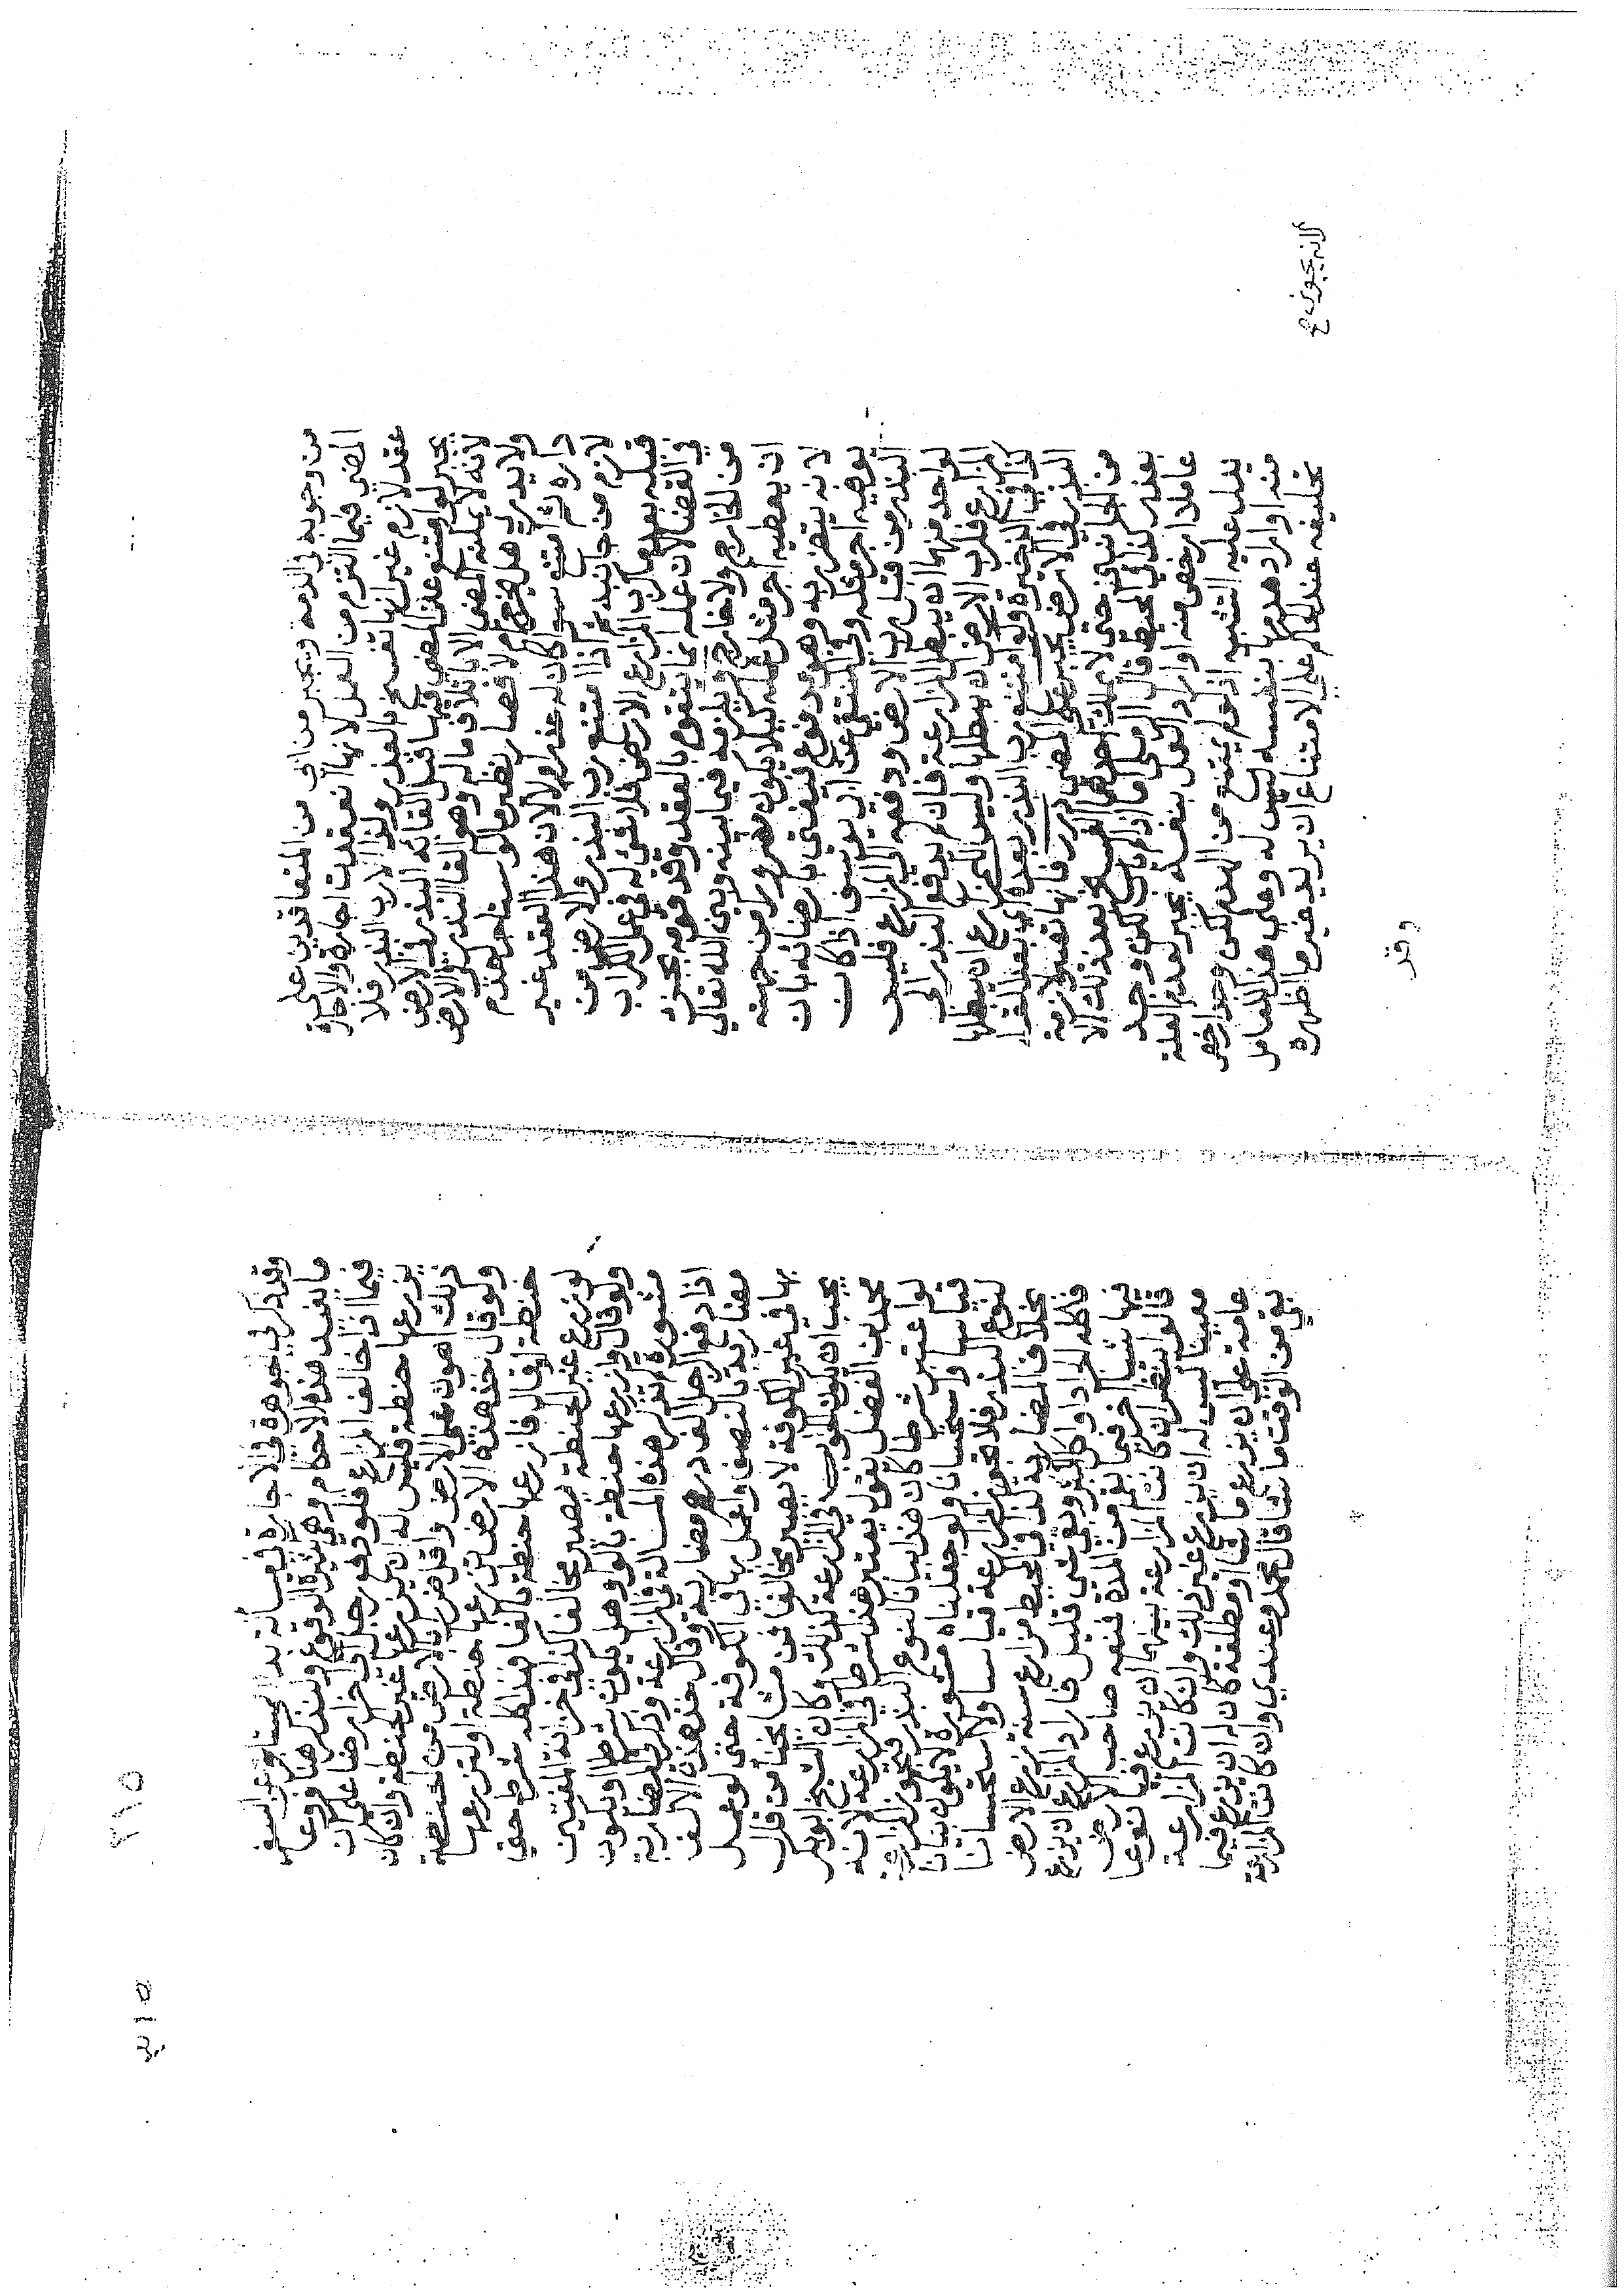 من وجوبه في الذمة ويجبر من ابى من المتعاقدين على
المضي فيما التزم من العمل لانها انعقدت اجارة والاجارة
عقد لازم غير انها تفسخ بالعذر ولذا الارب البذر فلا
يجبر لو امتنع عن المضي فيها قبل القائه البذر في الارض
لانه لا يمكنه المضي الا باتلاف ماله وهو القا البذر في الارض
ولا يدري هل يخرج ام لا فصار نظير ما لو استاجر لهدم
داره ثم امتنع سواء كان له عذر او لا لان هذا العقد غير
لازم من جانبه ثم اذا امتنع رب البذر والارض من
قبله بعدما كرب المزارع الارض فلا شئ له في عمل الكراب
في القضا لان عمله انما يتقوم بالعقد وقد قومه بجزء
من الخارج ولا خارج ويلزمه فيما بينه وبين الله تعالى
ان يعطيه اجر مثل عمله كيلا يكون مغرورا من جهته
لانه يتضرر به وهو مدفوع فيفتى بارضائه بان
يوفيه اجر مثله وفي الملتقى عن ابي يوسف اذا كان
البذر من قبل رب الارض ودفعه الى المزارع فليس
لواحد منهما ان يبطل المزارعة فان لم يدفع البذر الى
المزارع فلرب الارض ان يبطلها وليس للمزارع ان يبطلها
كذا في الذخيرة ولو امتنع رب البذر بعده اي بعد القاء
البذر في الارض يجبر على المضي درر فانها تصير لازمة
من الجانبين حتى لا يملك احدهما الفسخ بعد ذلك الا
بعذر كذا في المحيط قال الرملي اما اذا لم ياب لكن وجد
عاملا ارخص منه او اراد العمل بنفسه يجبر لعدم العلة
يدل عليه التشبيه اذ لو لم يمتنع من الهدم لكن وجد ارخص
منه او اراد هدمها بنفسه ليس له وعلى هذا للعامل
تحليفه عند الحاكم على الامتناع ان يريد غير ما اظهره
لانه يجوز ح
وقد
وقد ذكر في الجوهرة في الاجارة في مسألة بدا للمستاجر عن السفر
ما يفيد هذه الاحكام وهي كثيرة الوقوع ولنذكر هنا فروعا
فيما اذا خالف المزارع فلو دفع رجل الى اخر ارضا على ان
يزرعها حنطة فليس له ان يزرعها غير الحنطة وان كان
ذلك اهون على الارض واقل ضررا بالارض من الحنطة
ولو قال خذ هذه الارض لتزرعها حنطة او لتزرعها
حنطة او قال فازرعها حنطة بالفا فذلك شرط حتى
لو زرع غير الحنطة يصير مخالفا كذا في خزانة المفتيين
ولو قال وازرعها حنطة بالواو هل يكون شرطا او يكون
مشورة لم يذكر هذه المسالة في المزارعة وذكر في المضاربة
اذا دفع الرجل الف درهم مضاربة وقال خذ هذه الالف
مضاربة بالنصف واعمل بها في الكوفة حتى لو عمل
بها في غير الكوفة لا يصير مخالفا فمن مشايخنا من قال
يجب ان يكون الجواب في المزارعة كذلك وكان الشيخ ابو بكر
محمد بن الفضل يقول يعتبر هذا شرطا في المزارعة لانه
لو اعتبر شرطا كان هذا بيانا لنوع البذر فيجوز المزارعة
قياسا واستحسانا ولو جعلناه مشورة لا يكون بيانا
لنوع البذر فلا تجوز المزارعة قياسا ولا استحسانا
بخلاف المضاربة كذا في المحيط مزارع سنة زرع الارض
فاكله الجراد او اكل اكثره وبقي شئ قليل فاراد المزارع ان يزرع
فيها شيئا اخر فيما بقي من المدة فمنعه صاحب الارض
قالوا ينظر ان كانت المزارعة بينهما ان يزرع فيها نوعا
معينا ليس له ان يزرع غير ذلك وان كانت المزارعة
عامة على ان يزرع ما شا او مطلقة كان له ان يزرع فيما
بقي من الوقت ما شا قال محمد وعندي وان كانت المزارعة
٢١٥
٢١٥